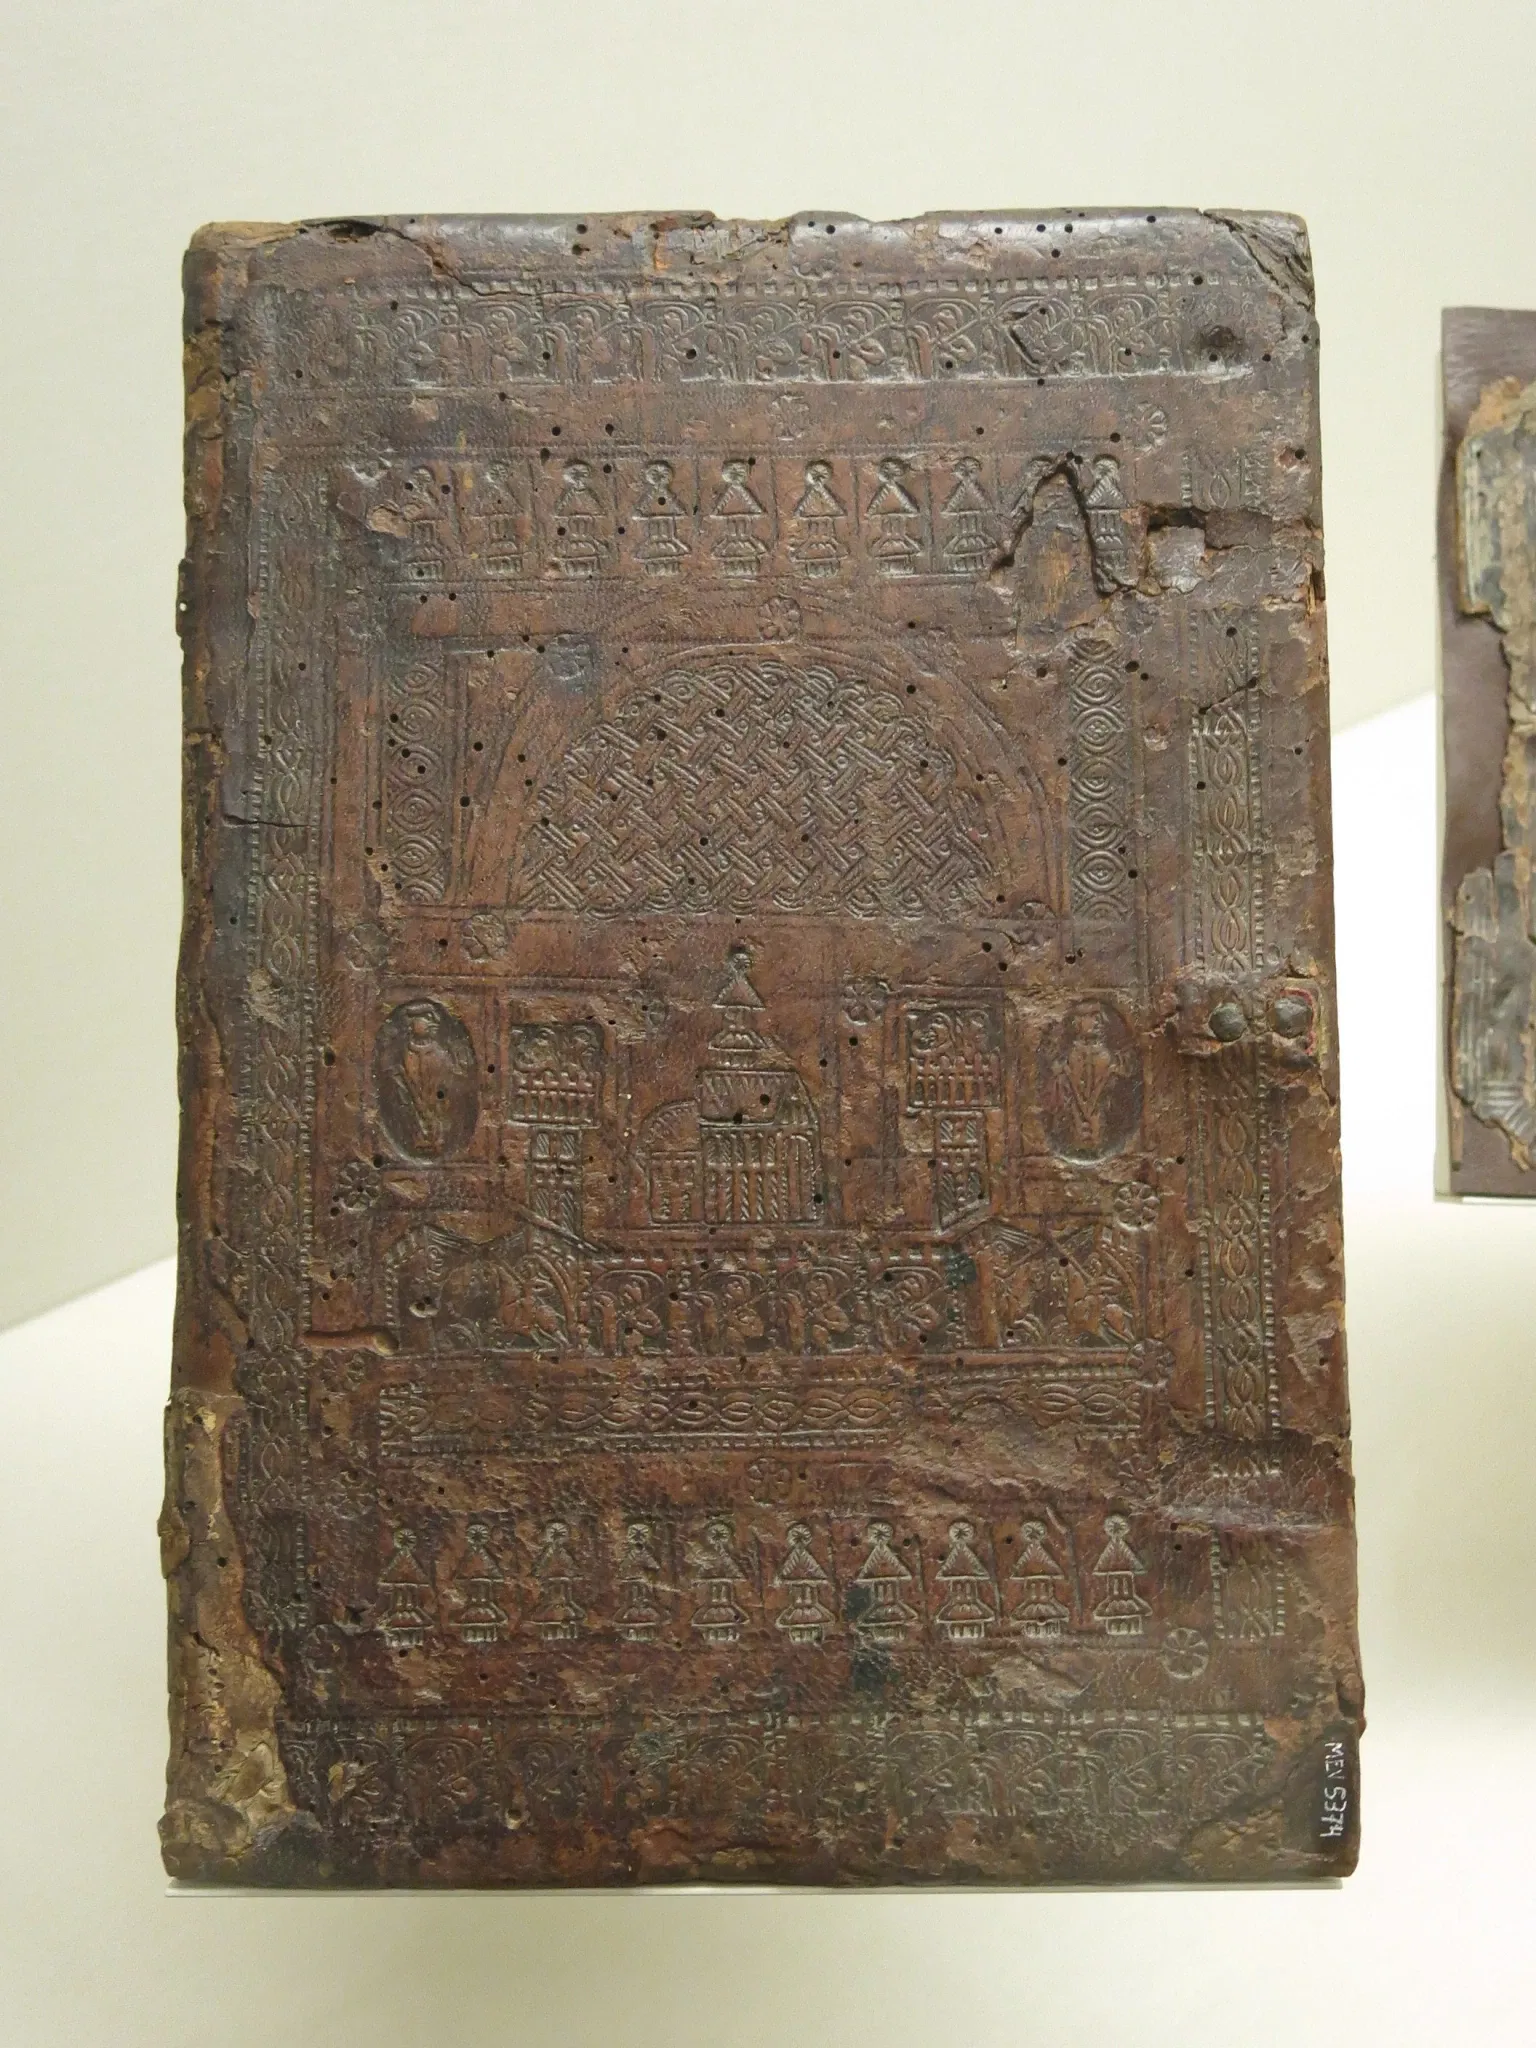 MEV 5374